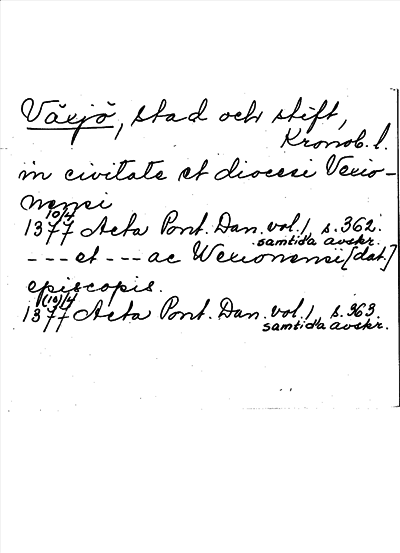 Växjö, stad och stift,
Kronob. l.
in civitate et diocesi Vexio-
nensi
10/4
1377 Acta Pont. Dan. vol. 1, s. 362.
samtida avskr.
--- et --- ac Wexionensi [dat.]
episcopis.
(10/4)
1377 Acta Pont. Dan. vol. 1, s. 363.
samtida avskr.